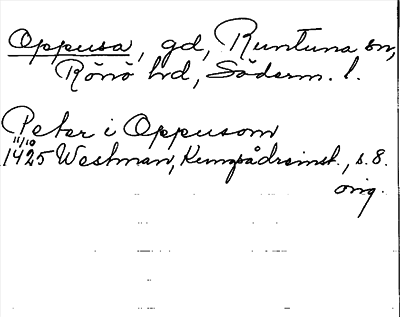 Oppusa, gd, Runtuna sn,
Rönö hd, Söderm. l.
Peter i Oppusom
11/10
1425 Westman, Kungsådreinst., s. 8.
orig.